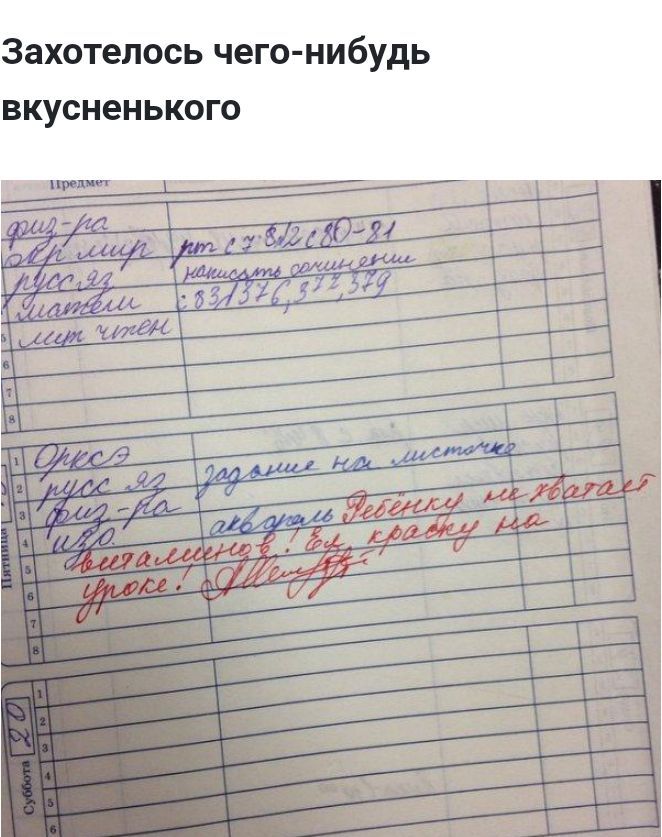 Захотелось чего-нибудь
вкусненького
Предмет
физ-ра
окр мир рт с 7 8,12 с80-81
русс яз написать сочинение
матем с 83 1376, 377, 379
5 лит чтен
6
7
8
Пятница
1 ОРКСЭ
2 русс яз задание на листочке
3 физ-ра
4 изо. акварель Ребёнку не хватает
витаминов! Ел краску на
5 уроке!
6
7
8
Суббота 20
1
2
3
4
5
6